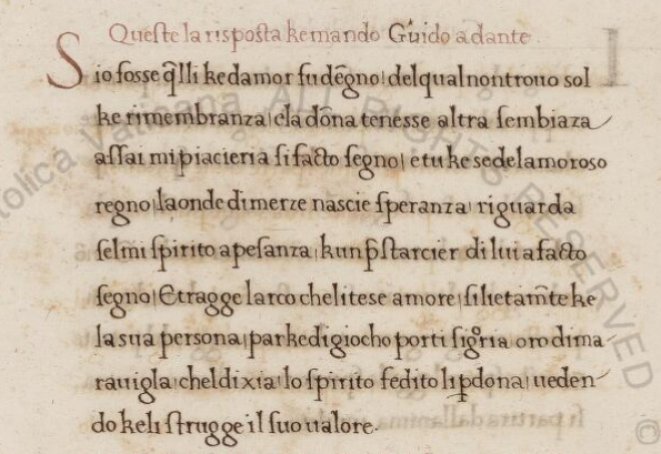 Queste la risposta ke mando Guido a dante.
Sio fosse q̄lli ke damor fu dēgno | del qual non trouo sol
ke rimembranza | e la dōna tenesse altra sembiāza
assai mi piacieria si facto segno | e tu ke se de lamoroso
regno | la onde di merze nascie speranza | riguarda
sel mi spirito a pesanza | kun p̄sto arcier di lui a facto
segno | Et tragge larco che li tese amore | si lietam̄te ke
la sua persona | par ke di giocho porti sigr̄ia | or odi ma
rauigla | chel dixia | lo spirito fedito li p̄dona | ueden
do ke li strugge il suo ualore.
ALL RIGHTS RESERVED
©